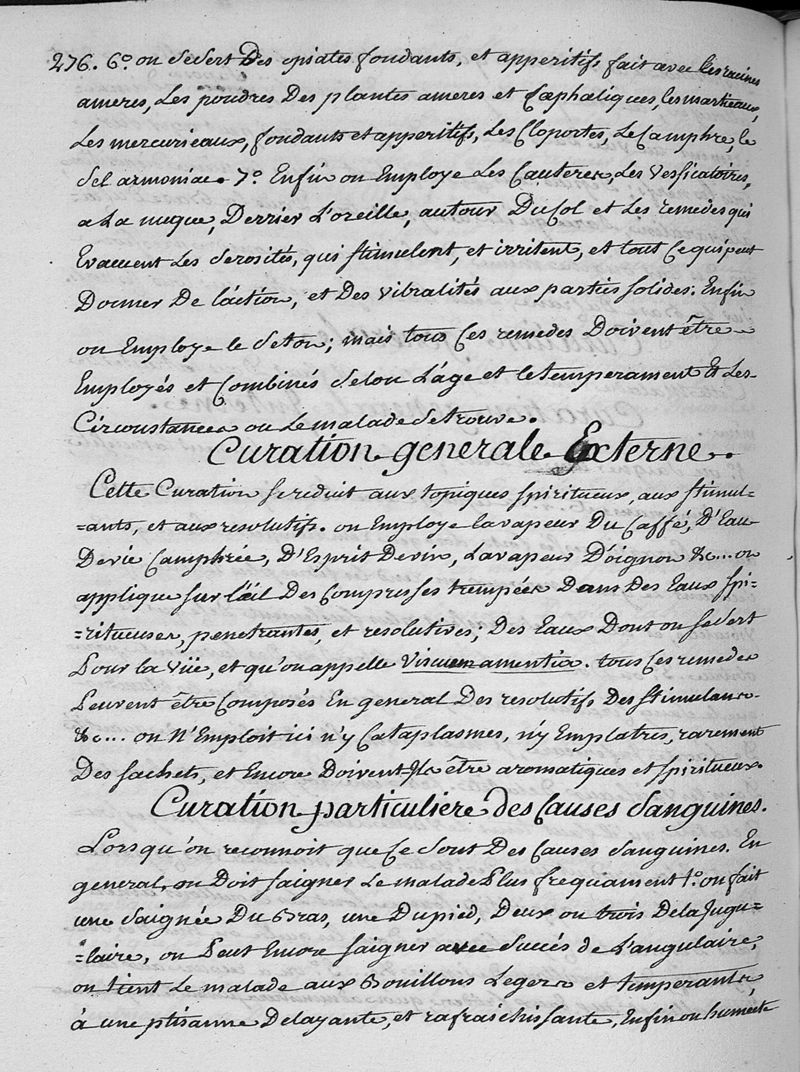 276. 6.º on se sert Des opiates fondants, et apperitifs fait avec les racines
ameres, Les poudres Des plantes ameres et Cæphaliques, les martieaux,
Les mercurieaux, fondants et apperitifs, Les Cloportes, Le Camphre, le
Sel armoniac. 7.º Enfin on Employe Les Cauteres, Les Vesficatoires,
a La nuque, Derrier L'oreille, autour Du Col et Les remedes qui
Evacuent Les Serosités, qui stimulent, et irritent, et tout Ce qui peut
Donner De l'action, et Des vibralités aux parties solides. Enfin
on Employe le Seton; mais tous Ces remedes Doivent être
Employés et Combinés Selon L'age et le temperament Et Les
Circonstances ou Le malade Se trouve.
Curation generale Externe.
Cette Curation se reduit aux topiques spiritueux, aux stimul-
=ants, et aux resolutifs. on Employe la vapeur Du Caffé, D'Eau
De vie Camphrée, D'Esprit De vin, La vapeur D'oignon &c... on
applique sur l'œil Des Compresses trempées Dans Des Eaux spi-
=ritueuses, penetrantes, et resolutives; Des Eaux Dont on se sert
Pour la vüe, et qu'on appelle amentia. tous Ces remedes
Peuvent être Composés En general Des resolutifs Des stimulans.
&c... on N'Emploit ici n'y Cataplasmes, n'y Emplatres, rarement
Des sachets, et Encore Doivent-Ils être aromatiques et spiritueux.
Curation particuliere des Causes Sanguines.
Lorsqu'on reconnoit que Ce sont Des Causes Sanguines. En
general, on Doit saigner Le malade Plus frequament 1.º on fait
une Saignée Du Bras, une Du pied, Deux ou trois De la Jugu-
=laire, on Peut Encore saigner avec Succés de L'angulaire,
on tient Le malade aux Bouillons Legers et temperants,
à une ptisanne Delayante, et rafraichissante, Enfin on humecte